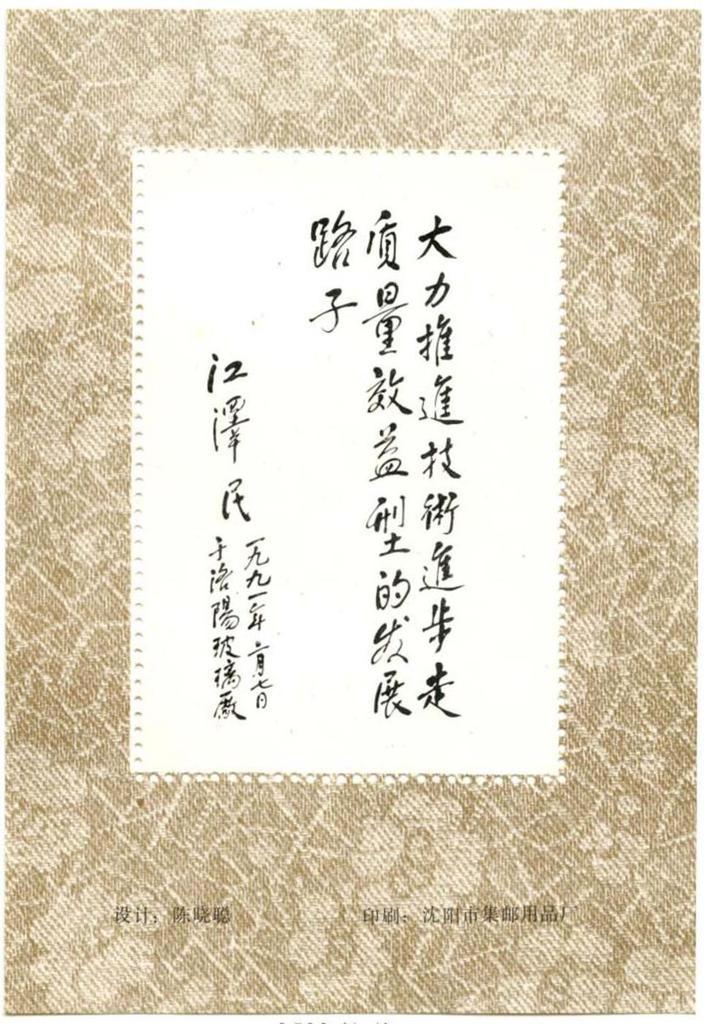 大力推進技術進步走
质量效益型的发展
路子
江澤民
一九九一年二月七日
于洛陽玻璃廠
设计：陈晓聪
印刷：沈阳市集邮用品厂